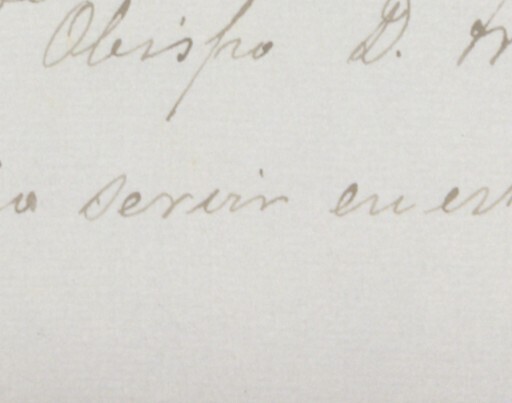 Obispo D.
servir en es